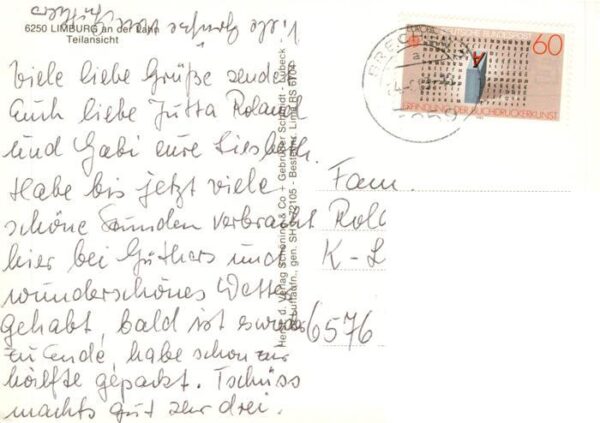 6250 LIMBURG an der Lahn
Teilansicht
Viele liebe Grüße sendet
Euch liebe Jutta Roland
und Gabi eure Liesbeth.
Habe bis jetzt viele
schöne Stunden verbracht
hier bei Günthers und
wunderschönes Wetter
gehabt, bald ist es wieder
zu Ende, habe schon zur
hälfte gepackt. Tschüss
machts gut ihr drei.
Viele Grüße
Herst. u. Verlag Schöning & Co + Gebrüder Schmidt - Lübeck
EUROPA DEUTSCHE BUNDESPOST
60
ERFINDUNG DER BUCHDRUCKERKUNST
Fam.
Rola
K-L
6576